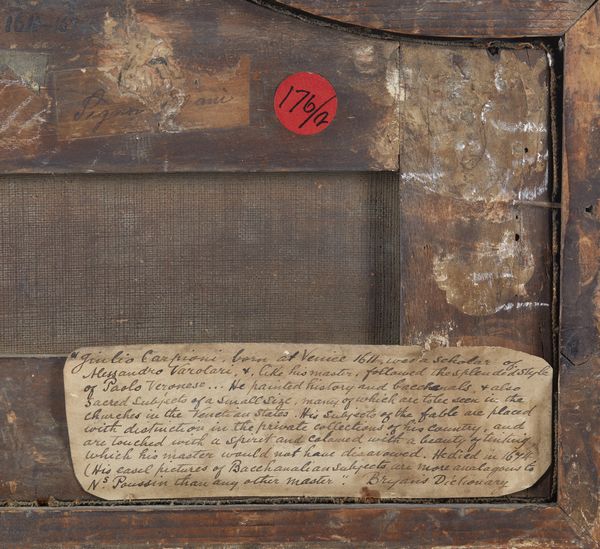 176/a
"Giulio Carpioni, born at Venice 1611, was a scholar of
Alessandro Varotari, &, like his master, followed the splendid style
of Paolo Veronese... He painted history and bacchanals, & also
Sacred Subjects of a Small Size, many of which are to be seen in the
churches in the Venetian States. His Subjects of the fable are placed
with distinction in the private collections of his country, and
are touched with a spirit and coloured with a beauty of tinting
which his master would not have disavowed. He died in 1674.
(His easel pictures of Bacchanalian Subjects are more analogous to
Ns Poussin than any other master" Bryans Dictionary